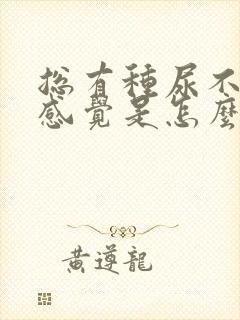 總有種尿不
感覺是怎麼
黃遵龍